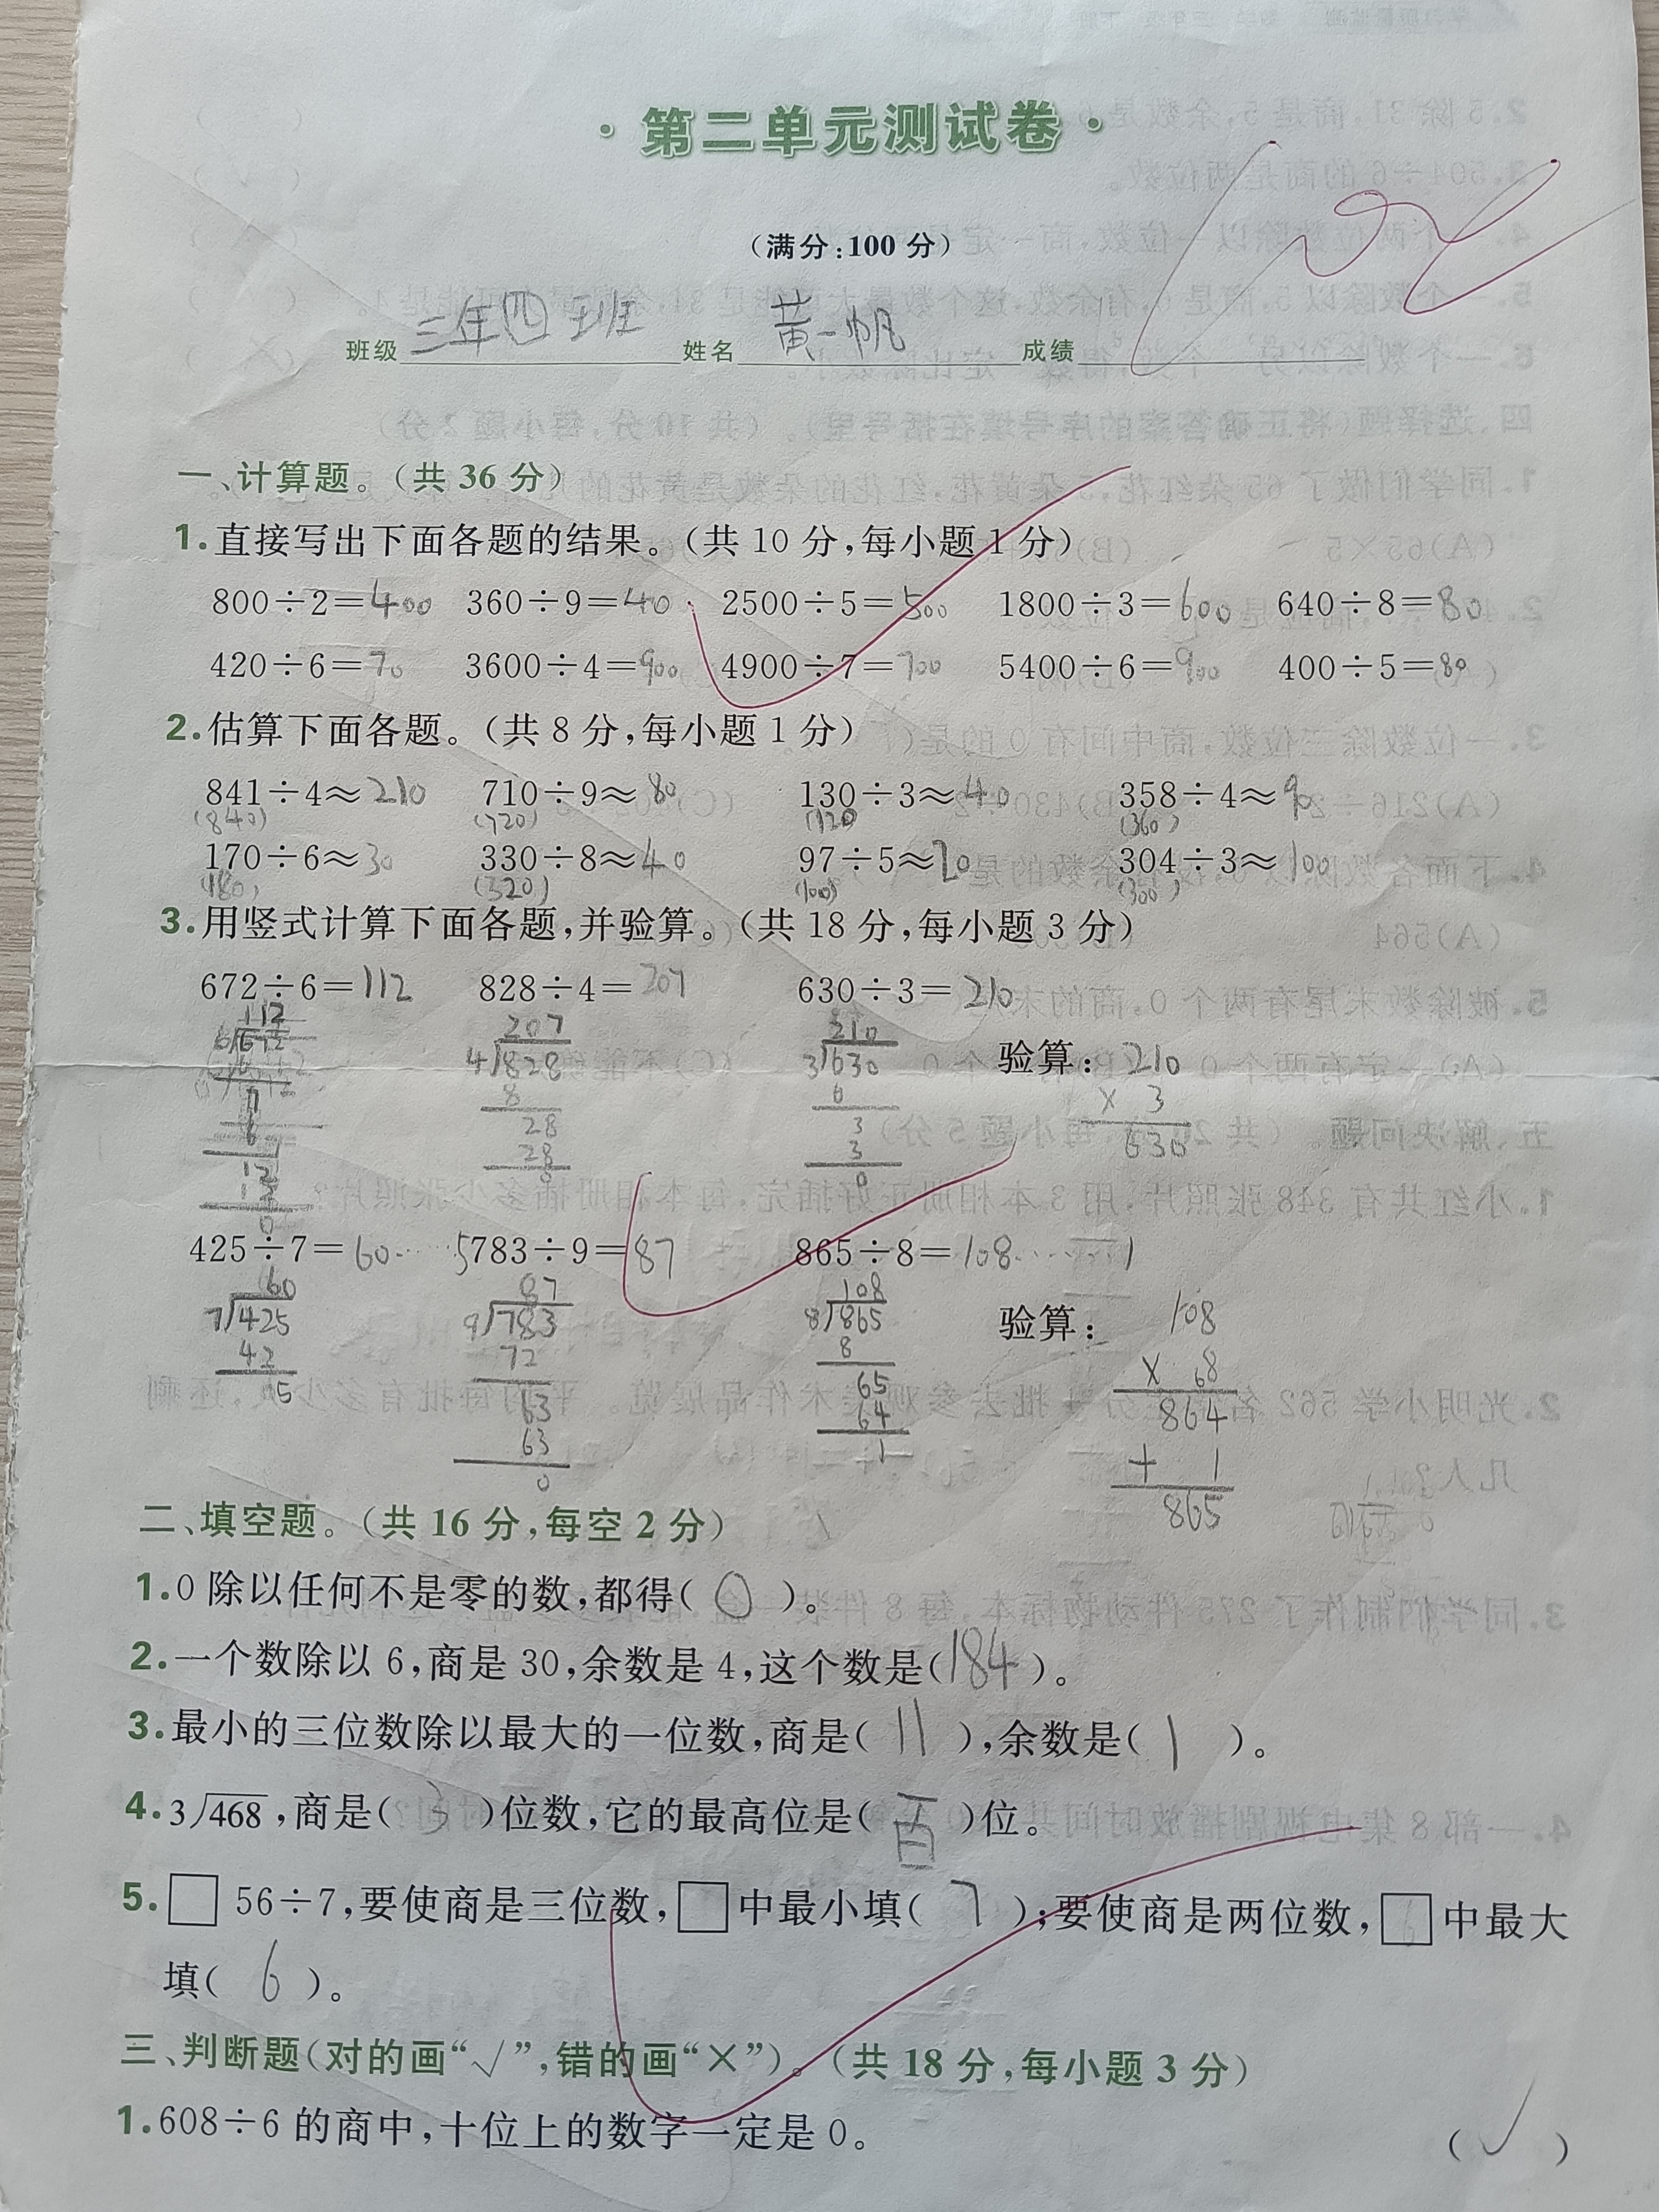 ·第二单元测试卷·
(满分:100 分)
班级 三年四班 姓名 黄一帆 成绩
一、计算题。(共 36 分)
1.直接写出下面各题的结果。(共 10 分,每小题 1 分)
800÷2=400 360÷9=40 2500÷5=500 1800÷3=600 640÷8=80
420÷6=70 3600÷4=900 4900÷7=700 5400÷6=900 400÷5=80
2.估算下面各题。(共 8 分,每小题 1 分)
841÷4≈210 710÷9≈80 130÷3≈40 358÷4≈90
(840) (720) (120) (360)
170÷6≈30 330÷8≈40 97÷5≈20 304÷3≈100
(180) (320) (100) (300)
3.用竖式计算下面各题,并验算。(共 18 分,每小题 3 分)
672÷6=112 828÷4=207 630÷3=210
112 207 210
6 672 4 828 3 630 验算: 210
6 8 6 × 3
7 28 3 630
6 28 3
12 0
12
0
425÷7=60……5 783÷9=87 865÷8=108……1
60 87 108
7 425 9 783 8 865 验算: 108
42 72 8 × 68
5 63 65 864
63 64 + 1
0 1 865
二、填空题。(共 16 分,每空 2 分)
1.0 除以任何不是零的数,都得( 0 )。
2.一个数除以 6,商是 30,余数是 4,这个数是(184)。
3.最小的三位数除以最大的一位数,商是( 11 ),余数是( 1 )。
4.3 468,商是( 3 )位数,它的最高位是( 百 )位。
5.□ 56÷7,要使商是三位数,□中最小填( 7 );要使商是两位数,□中最大
填( 6 )。
三、判断题(对的画“√”,错的画“×”)。(共 18 分,每小题 3 分)
1.608÷6 的商中,十位上的数字一定是 0。 (√)